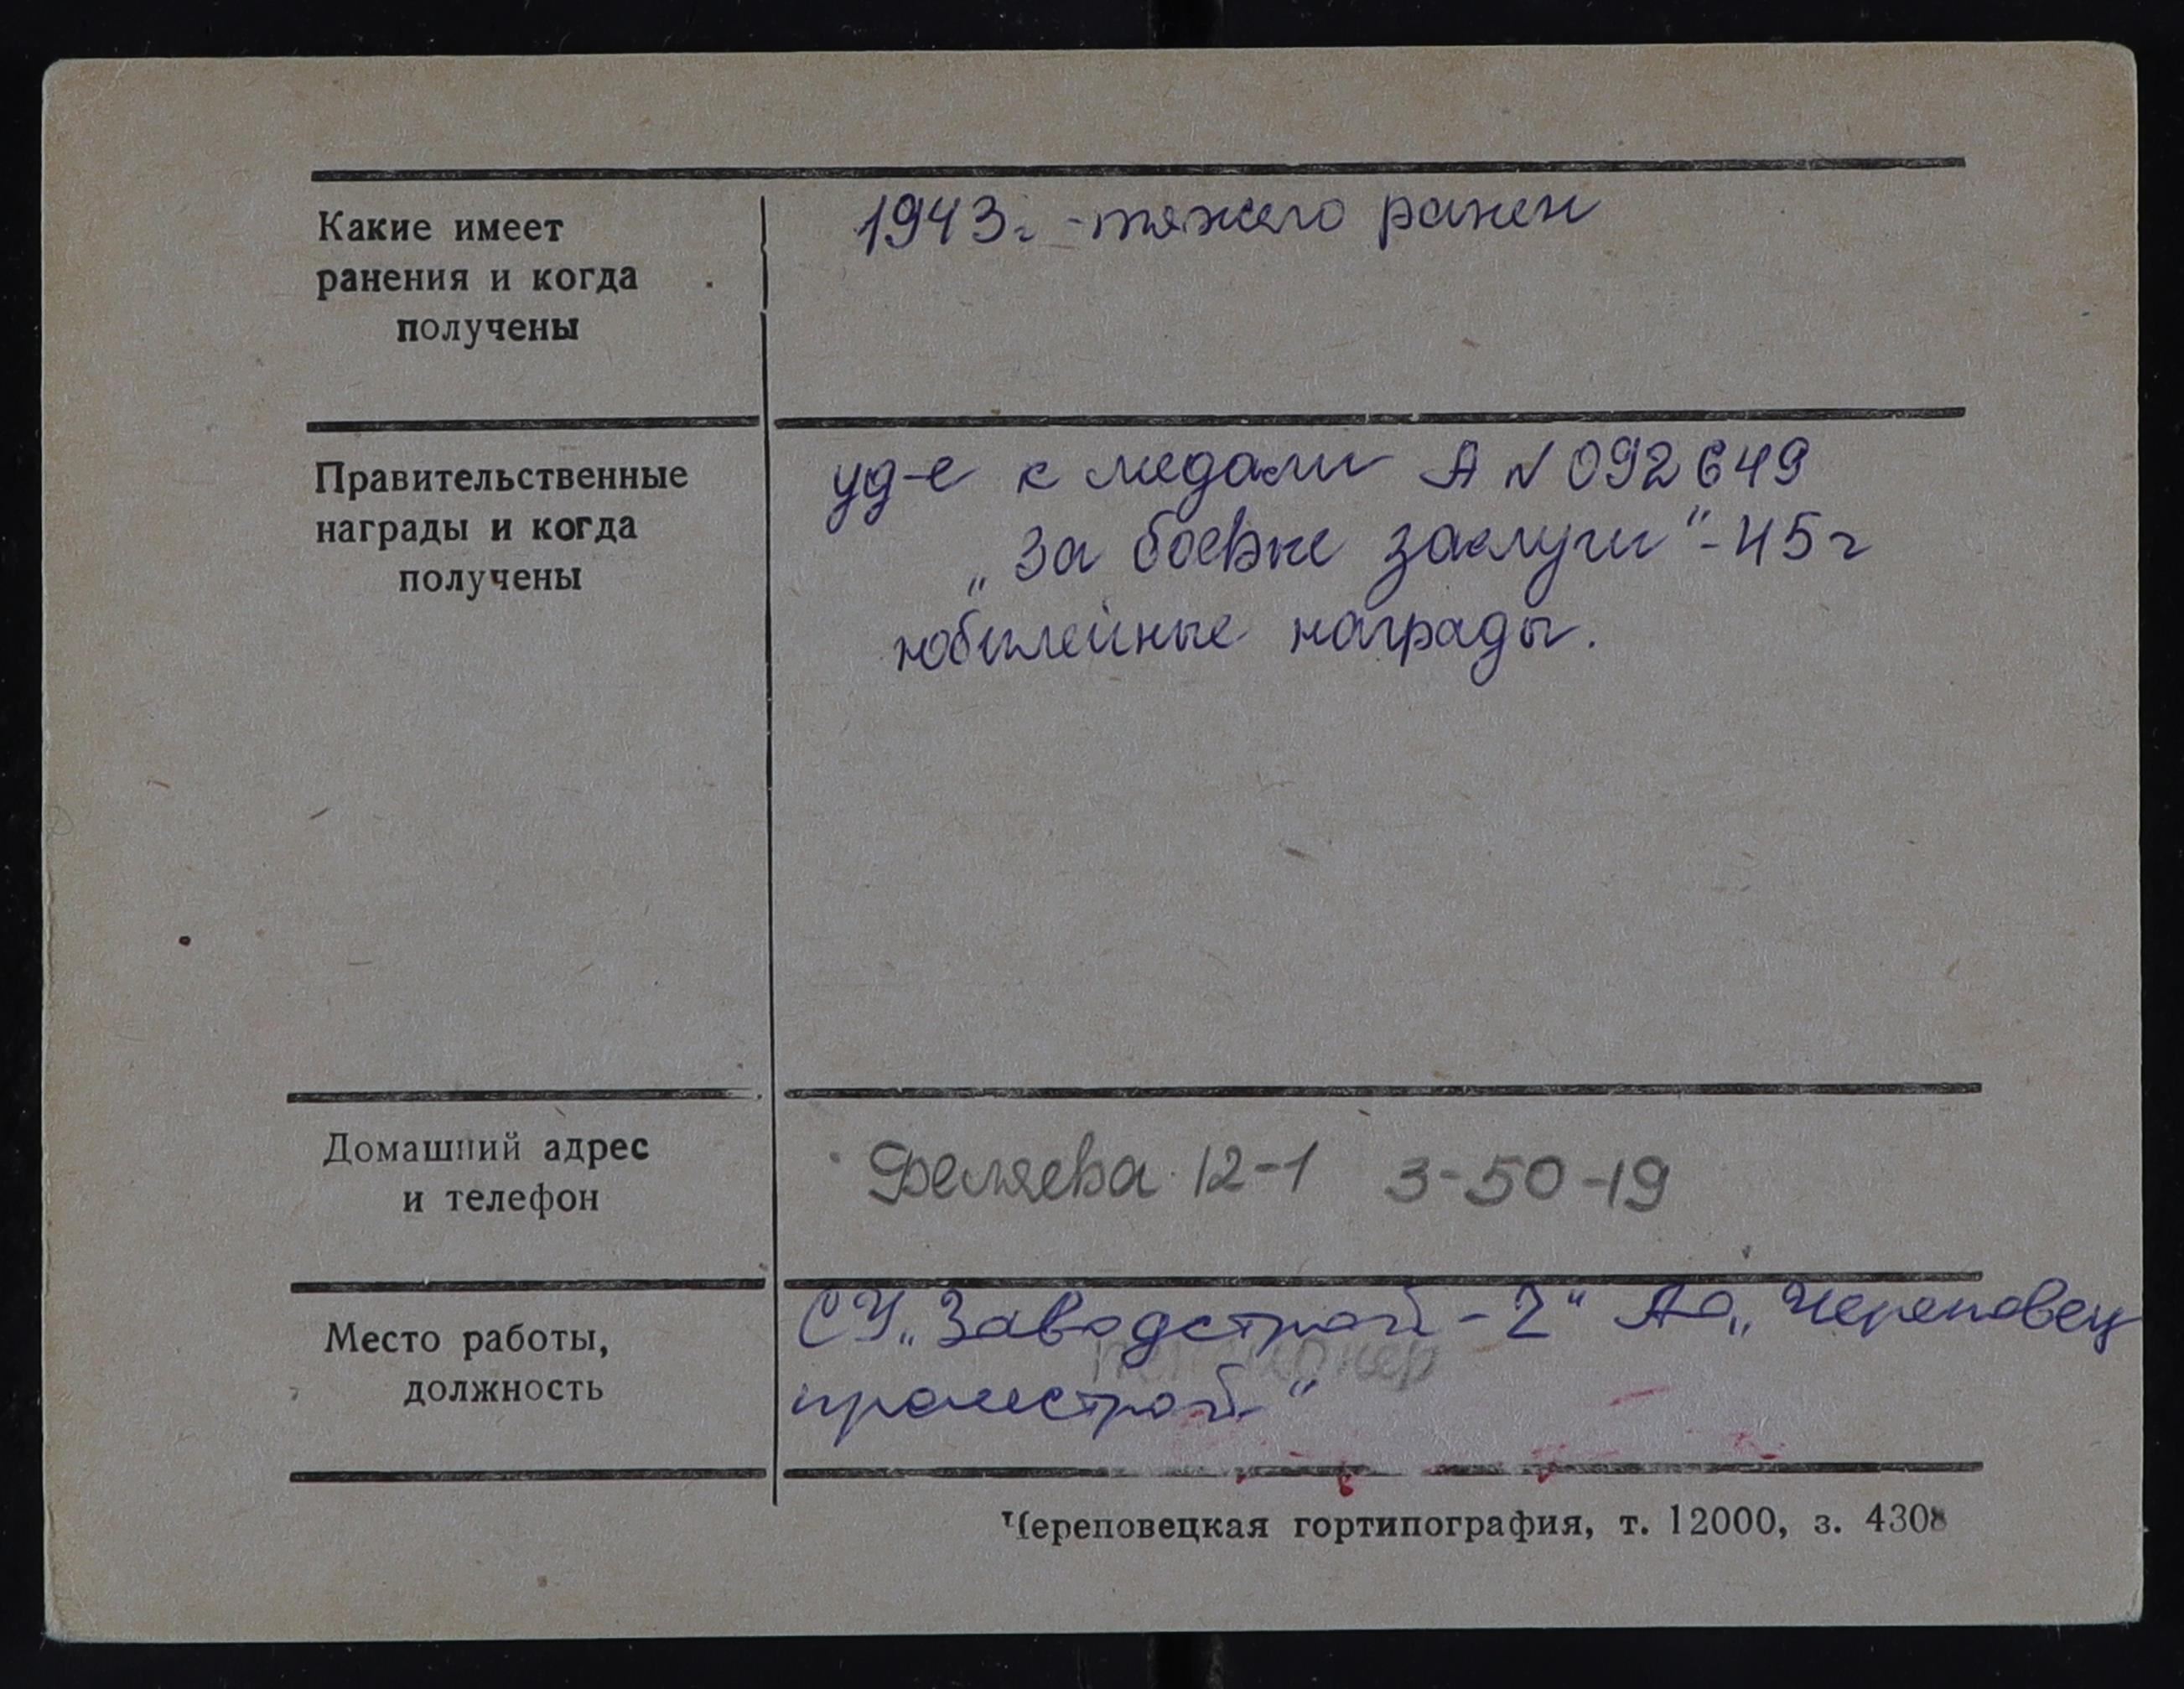 Какие имеет
ранения и когда
получены
1943г. - тяжело ранен
Правительственные
награды и когда
получены
уд-е к медали А N 092649
„За боевые заслуги" - 45 г
юбилейные награды.
Домашний адрес
и телефон
Беляева 12-1 3-50-19
Место работы,
должность
СУ „Заводстрой - 2" АО „Череповец
промстрой"
пенсионер
Череповецкая гортипография, т. 12000, з. 4308